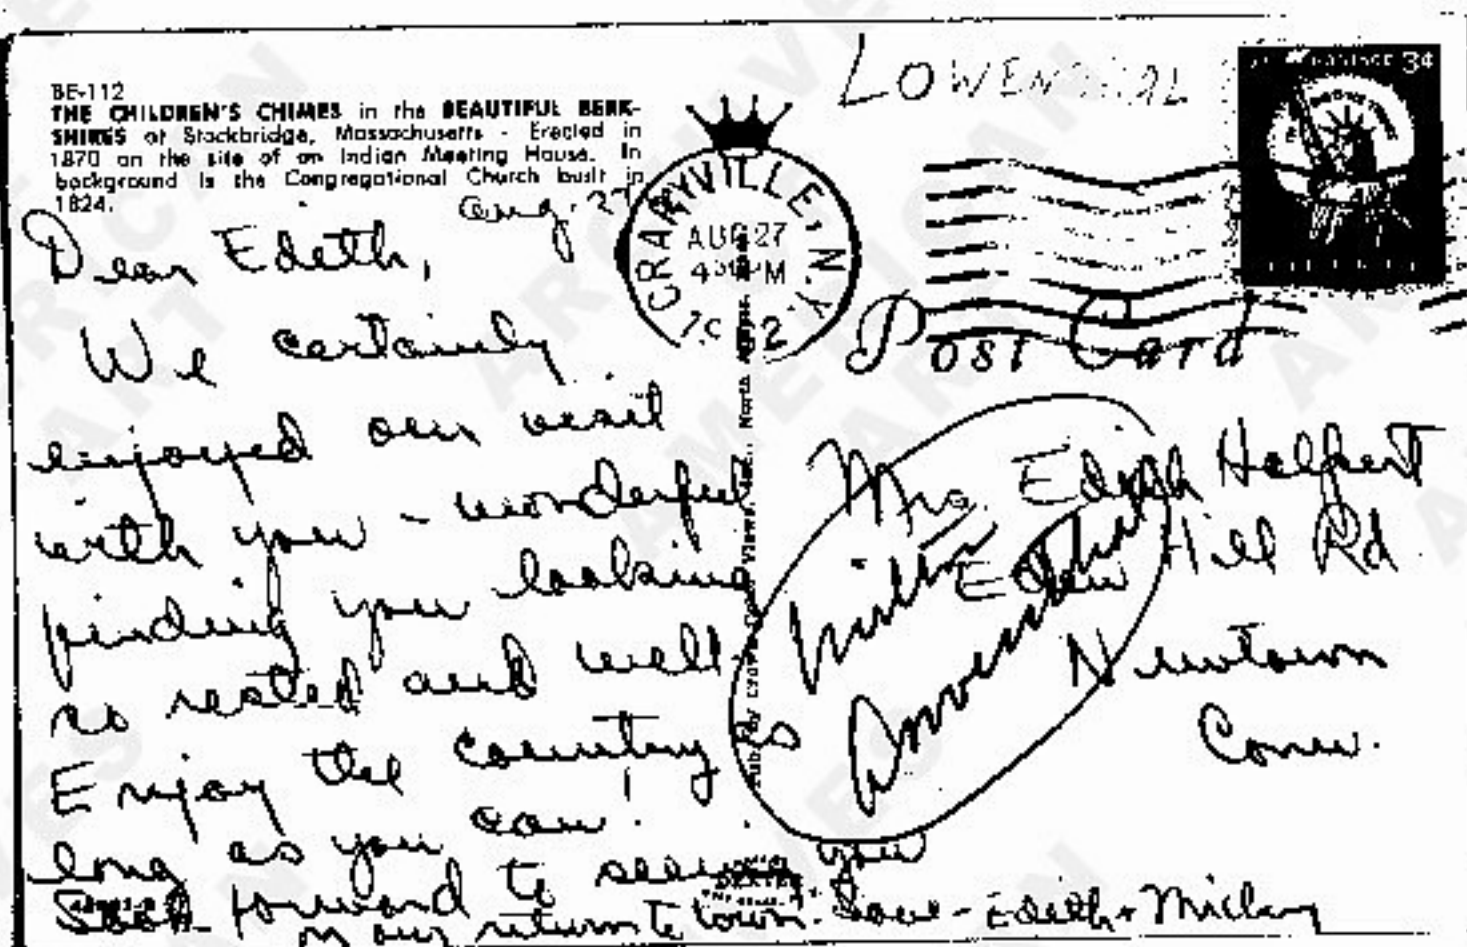 BE-112
THE CHILDREN'S CHIMES in the BEAUTIFUL BERK-
SHIRES at Stockbridge, Massachusetts - Erected in
1870 on the site of an Indian Meeting House. In
background is the Congregational Church built in
1824.
Aug. 27
Dear Edith,
We certainly
enjoyed our visit
with you - wonderful
finding you looking
so rested and well.
Enjoy the country as
long as you can.
Look forward to seeing you
on our return to town. Love - Edith + Mickey
LOWENTHAL
3¢
CRARYVILLE, N.Y.
AUG 27
PM
Post Card
Mrs. Edith Halpert
Eden Hill Rd
Newtown
Conn.